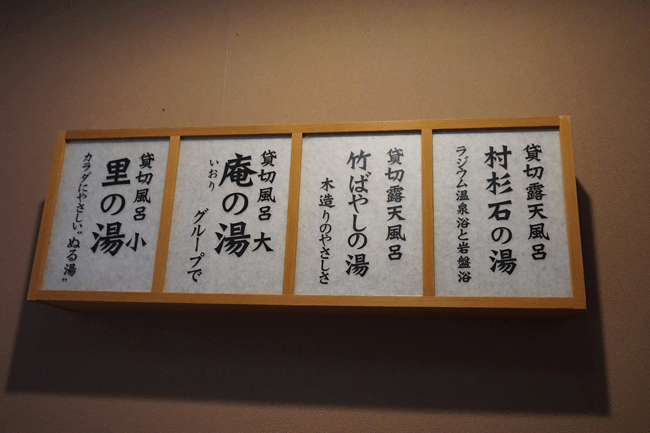 貸切露天風呂
村杉石の湯
ラジウム温泉浴と岩盤浴
貸切露天風呂
竹ばやしの湯
木造りのやさしさ
貸切風呂 大
庵の湯
いおり
グループで
貸切風呂 小
里の湯
カラダにやさしい"ぬる湯"